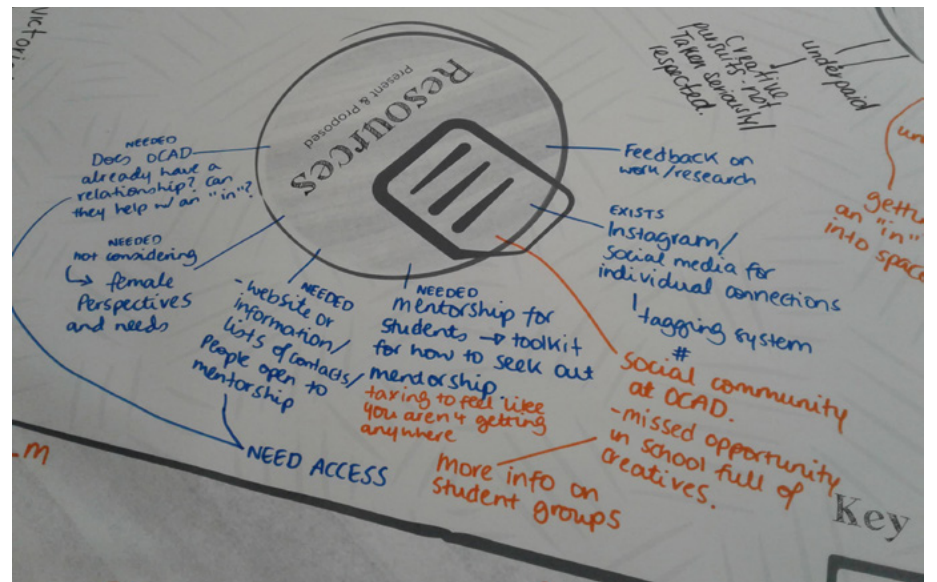 Victori
Resources
Present & Proposed
NEEDED
Does OCAD
already have a
relationship? Can
they help w/ an "in"?
NEEDED
not considering
↳ female
Perspectives
and needs
NEEDED
- website or
information/
lists of contacts/
people open to
mentorship
NEED ACCESS
NEEDED
mentorship for
students → toolkit
for how to seek out
mendorship.
taxing to feel like
you aren't getting
anywhere
Feedback on
work/research
EXISTS
Instagram/
Social media for
individual connections
tagging system
#
Social community
at OCAD.
- missed opportunity
in school full of
creatives.
more info on
student groups
Creative
pursuits not
Taken seriously/
respected.
underpaid
un
gettu
an "in"
into space
m
Key